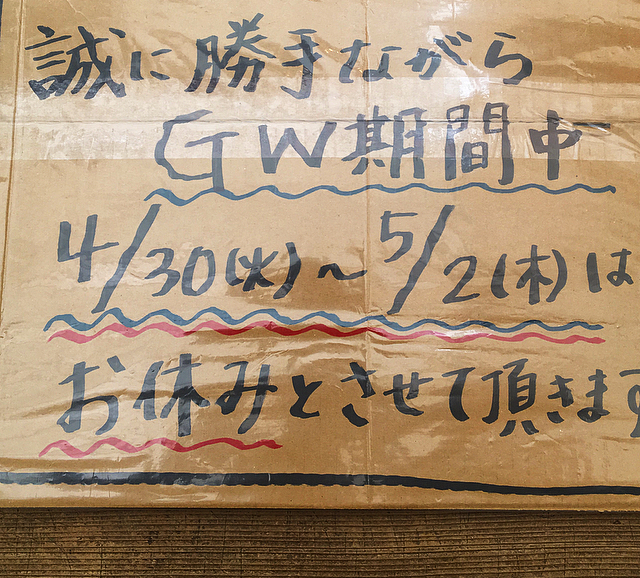 誠に勝手ながら
GW期間中
4/30(火)～5/2(木)は
お休みとさせて頂きます